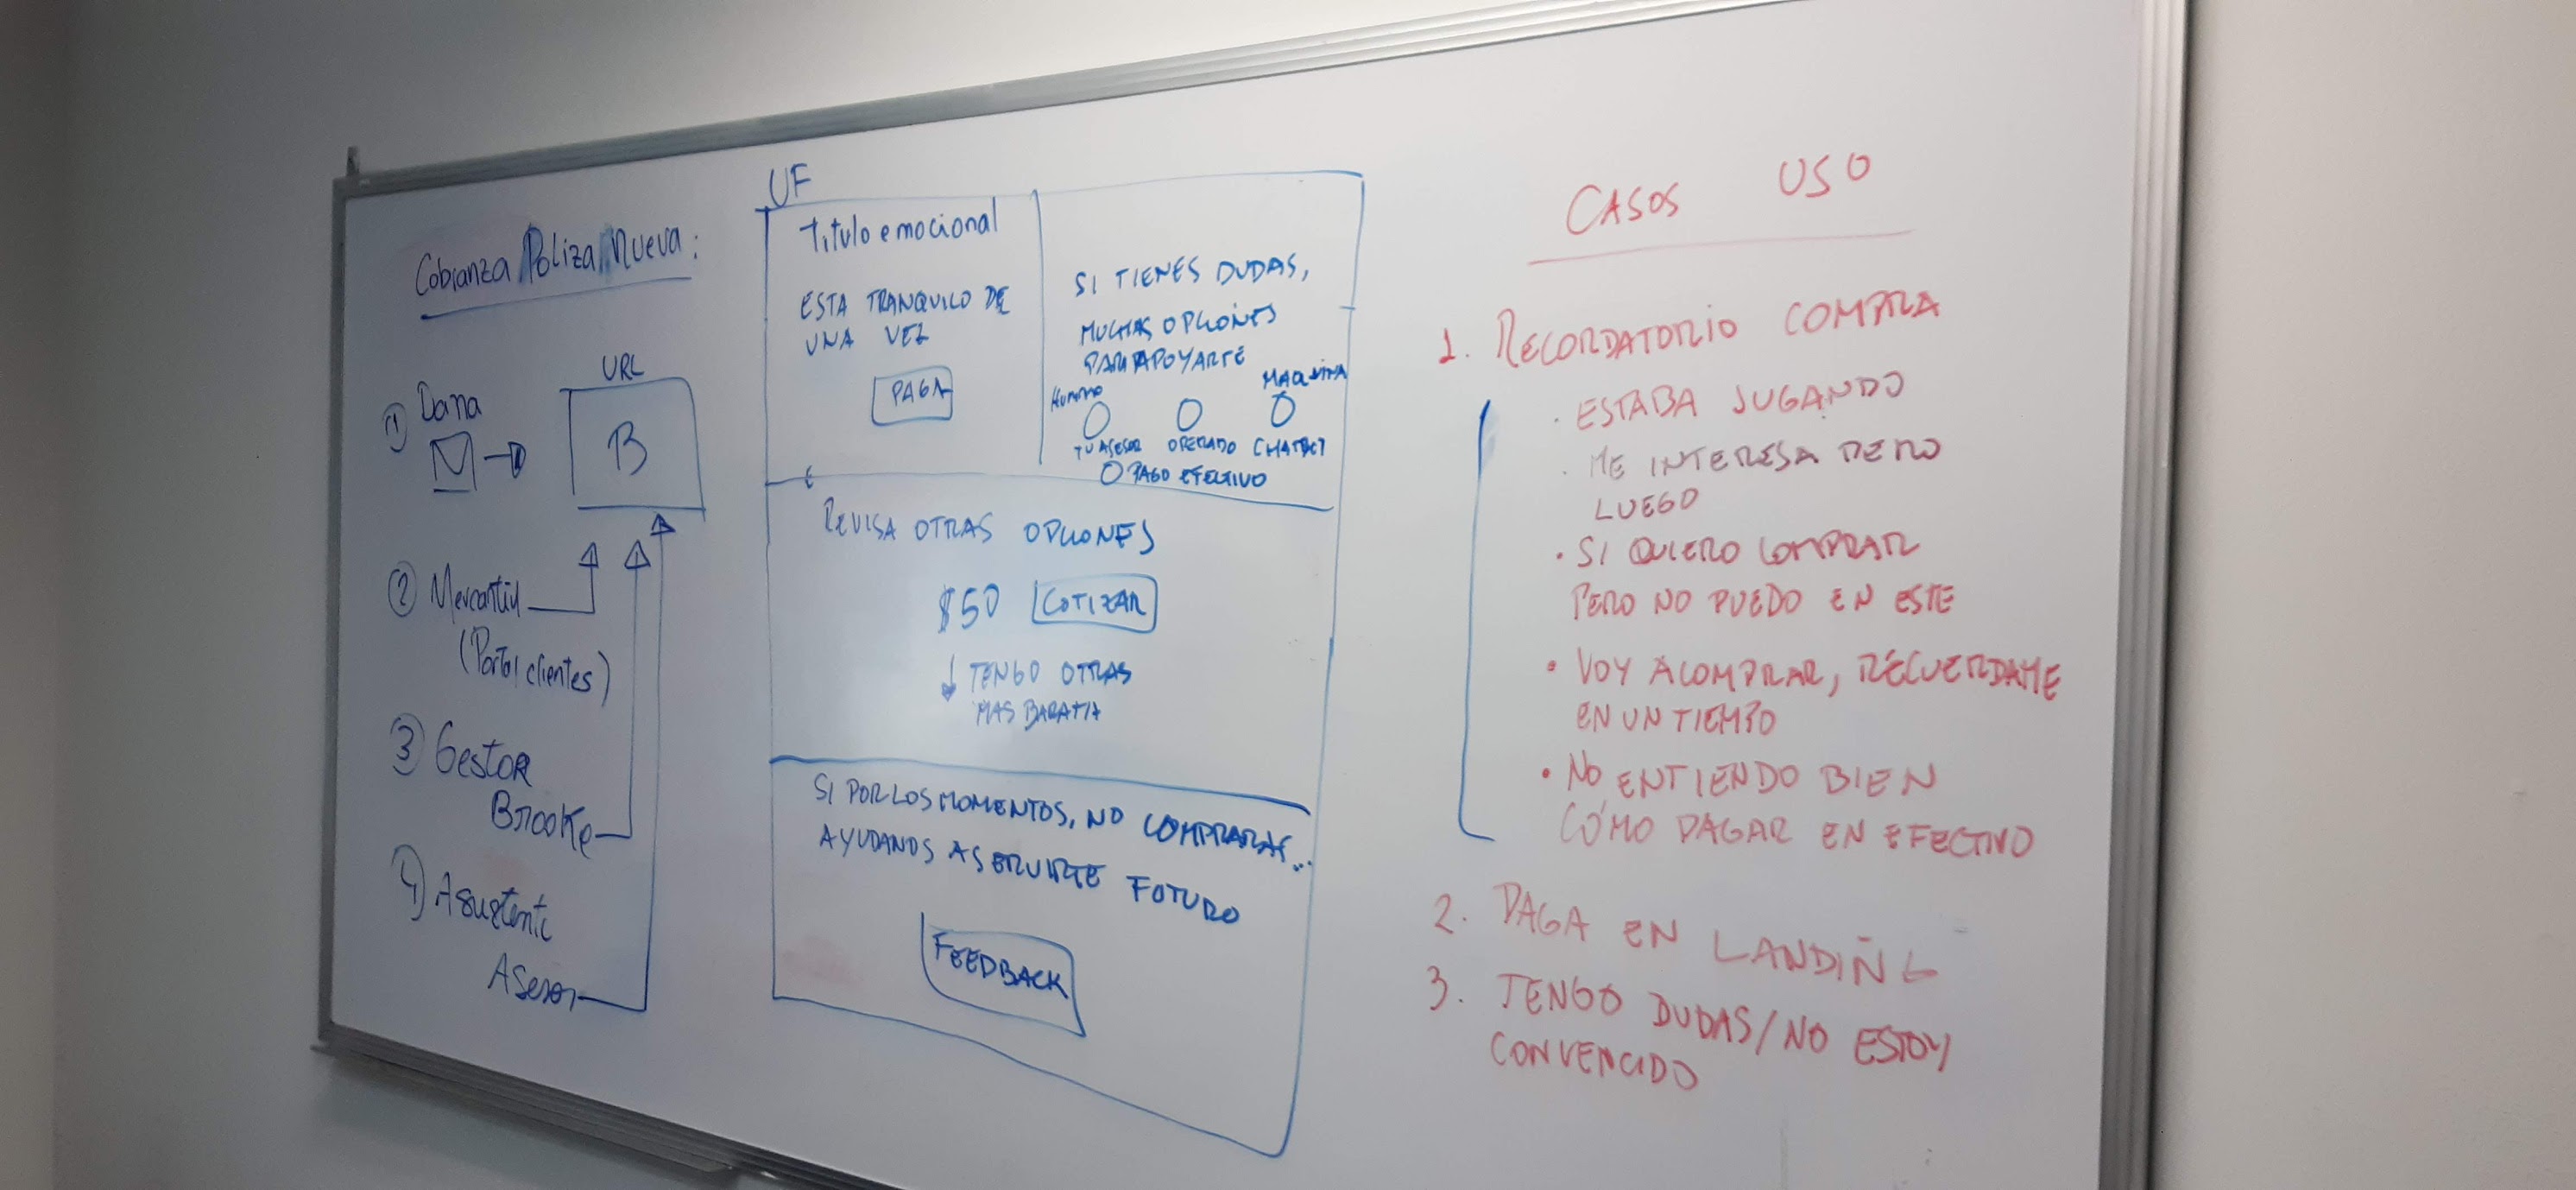 Cobranza Poliza Nueva:
① Dana
URL
B
② Mercantil
(Portal clientes)
③ Gestor
Brooke
④ Asistente
Asesor
UF
Titulo emocional
ESTA TRANQUILO DE
UNA VEZ
PAGA
SI TIENES DUDAS,
MUCHAS OPCIONES
PARA APOYARTE
HUMANO
MAQUINA
TU ASESOR OPERADO CHATBOT
PAGO EFECTIVO
REVISA OTRAS OPCIONES
$50 COTIZAR
↓ TENGO OTRAS
MAS BARATA
SI POR LOS MOMENTOS, NO COMPRARAS...
AYUDANOS A SERVIRTE FUTURO
FEEDBACK
CASOS USO
1. RECORDATORIO COMPRA
· ESTABA JUGANDO
· ME INTERESA PERO
LUEGO
· SI QUIERO COMPRAR
PERO NO PUEDO EN ESTE
· VOY A COMPRAR, RECUERDAME
EN UN TIEMPO
· NO ENTIENDO BIEN
CÓMO PAGAR EN EFECTIVO
2. PAGA EN LANDIÑG
3. TENGO DUDAS/NO ESTOY
CONVENCIDO